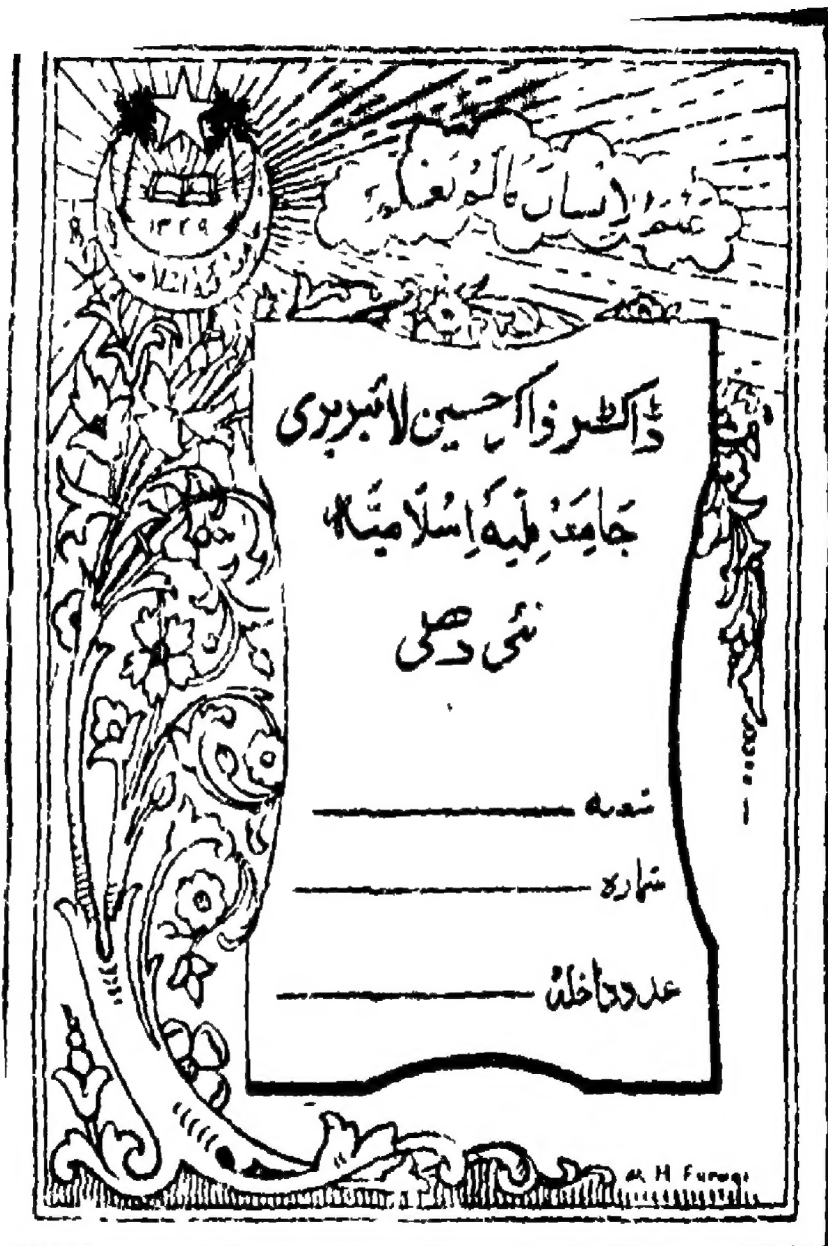 علم الانسان مالم يعلم
۱۳۳۹
ڈاکٹر ذاکر حسین لائبریری
جَامِعَہ مِلّیہ اِسْلَامیَّہ
نئی دھلی
شعبہ
شمارہ
عدد داخلہ
M H Furuqi